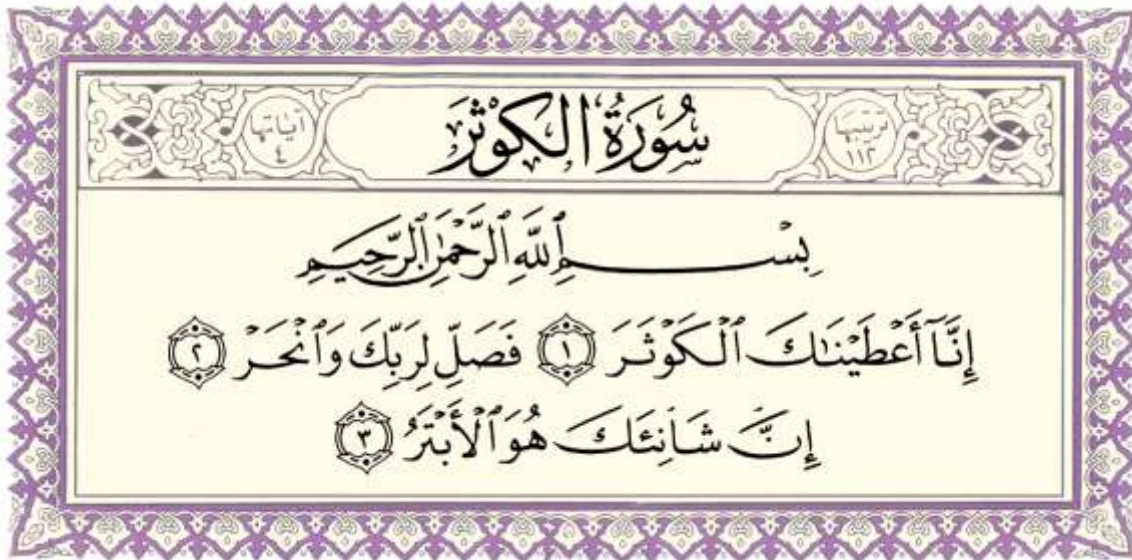 ترتيبها ١١٢
سُورَةُ الكَوْثَرَ
آياتها ٤
بِسْمِ ٱللَّهِ ٱلرَّحْمَٰنِ ٱلرَّحِيمِ
إِنَّآ أَعْطَيْنَٰكَ ٱلْكَوْثَرَ ١ فَصَلِّ لِرَبِّكَ وَٱنْحَرْ ٢
إِنَّ شَانِئَكَ هُوَ ٱلْأَبْتَرُ ٣